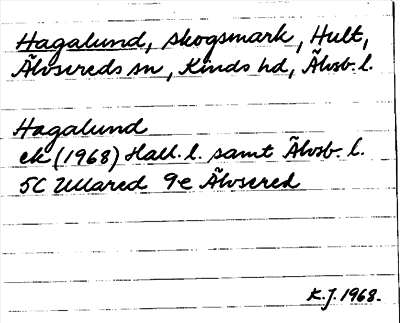 Hagalund, skogsmark, Hult,
Älvsereds sn, Kinds hd, Älvsb. l.
Hagalund
ek (1968) Hall. l. samt Älvsb. l.
5C Ullared 9e Älvsered
K.J. 1968.